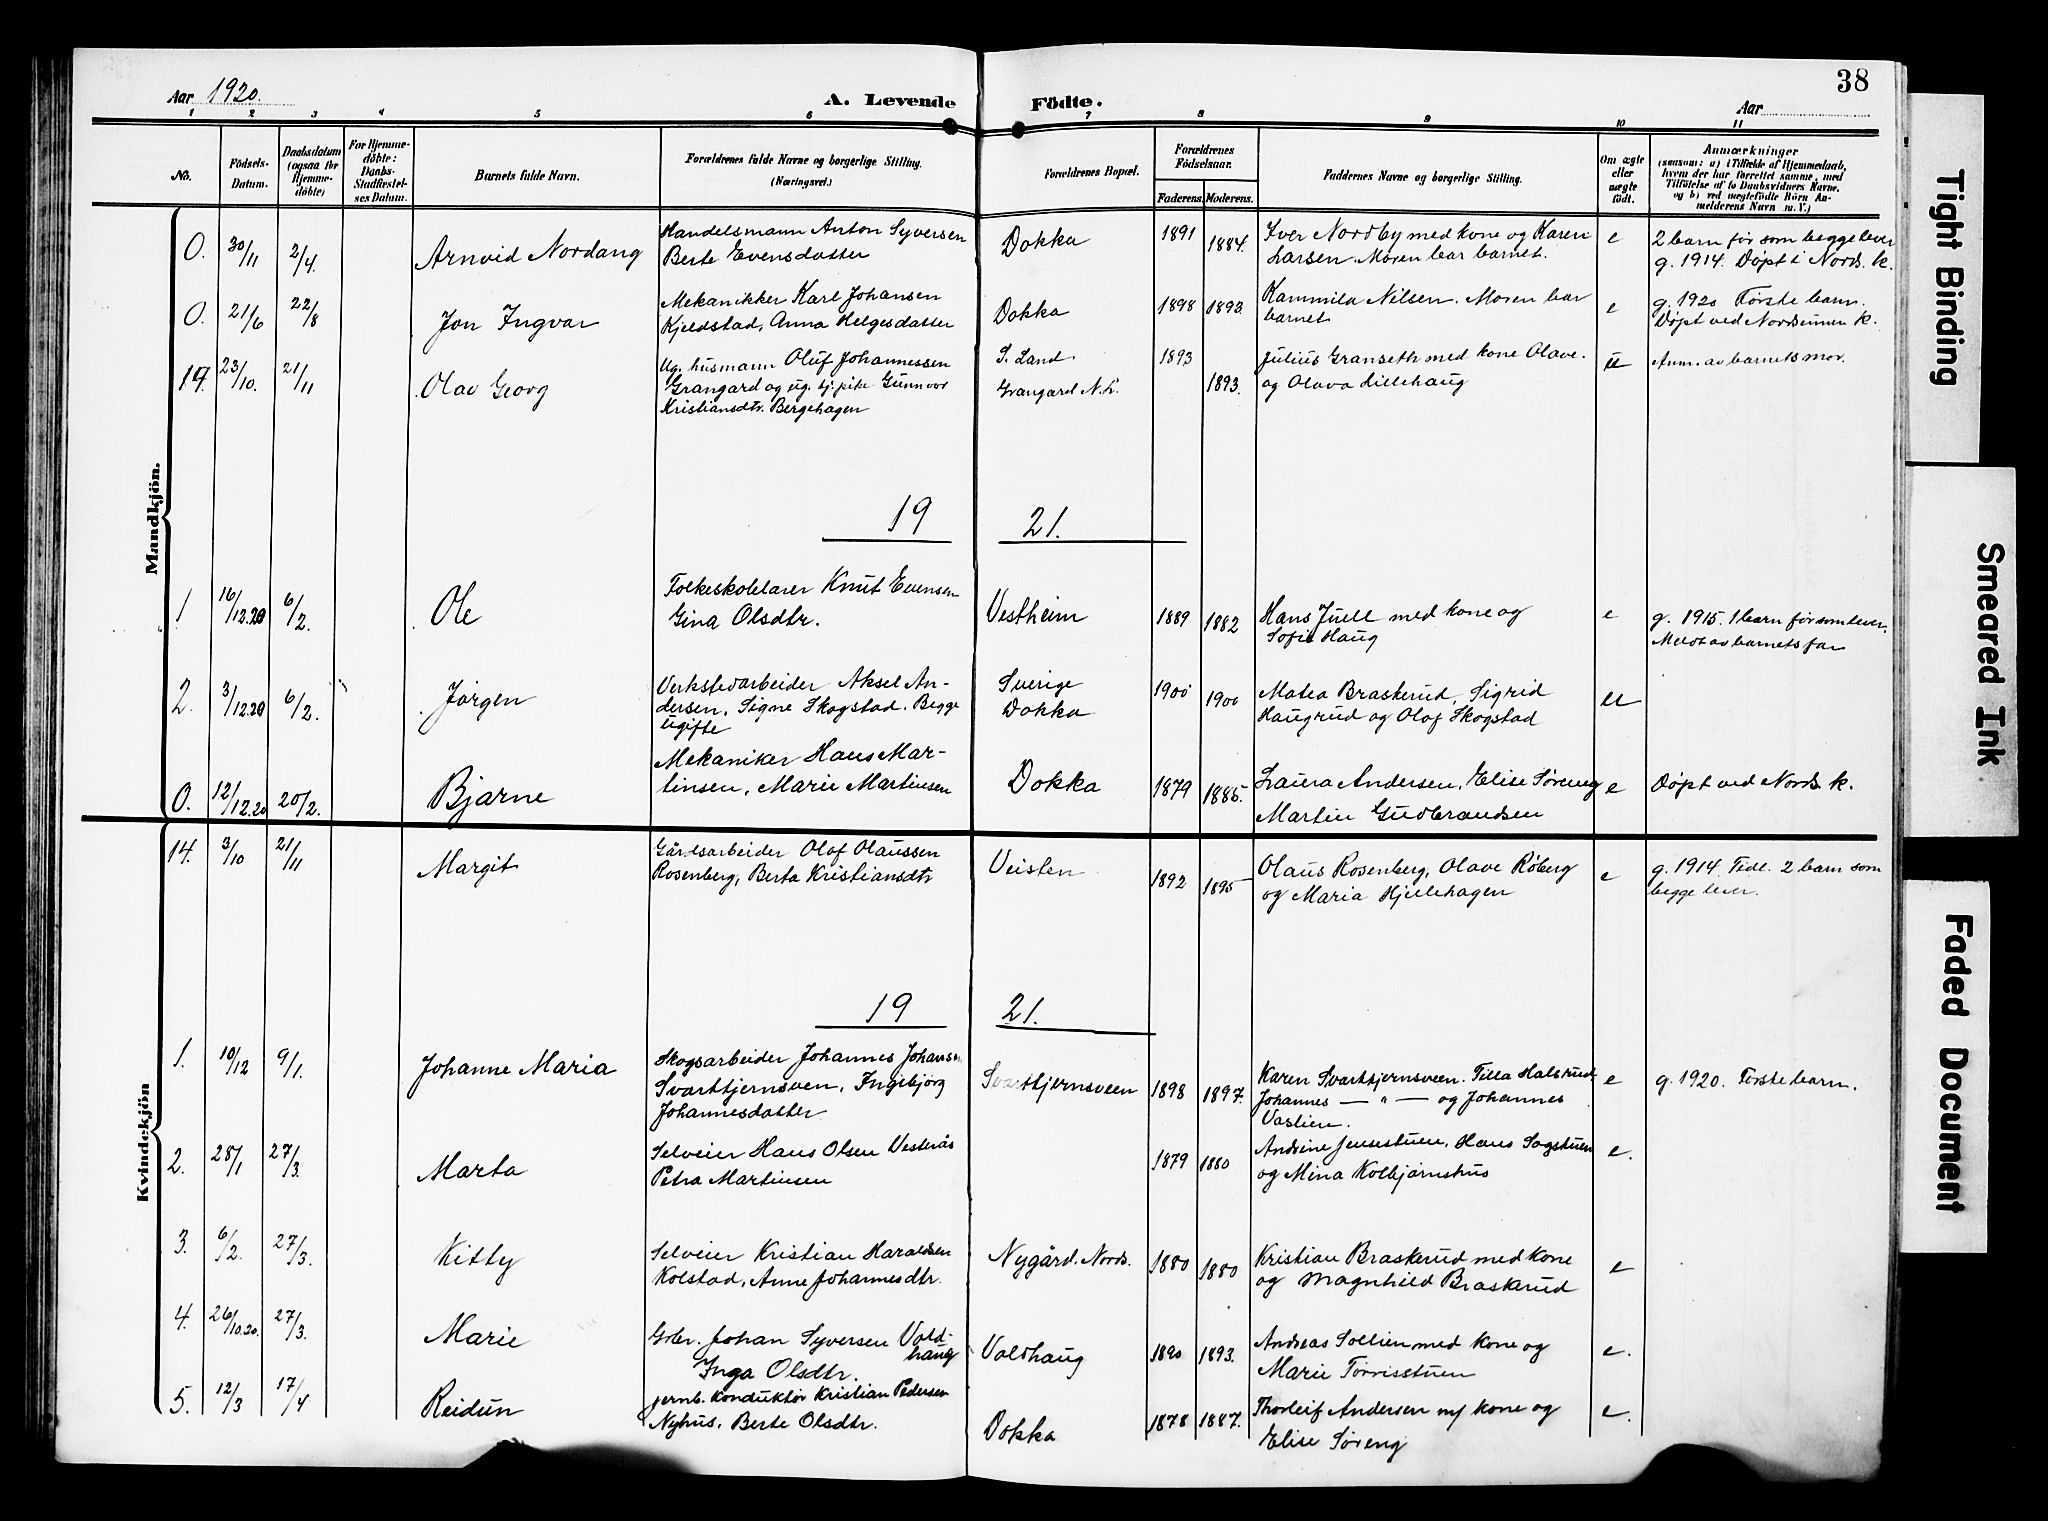 38
Aar 1920.
A. Levende Födte.
Aar
1 2 3 4 5 6 7 8 9 10 11
No.
Födsels-Datum.
Daabsdatum (ogsaa for Hjemme-döbte)
For Hjemme-döbte: Daabs-Stadfæstel-ses Datum.
Barnets fulde Navn.
Forældrenes fulde Navne og borgerlige Stilling.
(Næringsvei.)
Forældrenes Bopæl.
Forældrenes Födselsaar.
Faderens. Moderens.
Faddernes Navne og borgerlige Stilling.
Om ægte eller uægte födt.
Anmærkninger
(saasom: a) i Tilfælde af Hjemmedaab,
hvem der har forrettet samme, med
Tilföielse af to Daabsvidners Navne,
og b) ved uægtefödte Börn An-
melderens Navn m. V.)
Mandkjön.
0. 30/11 2/4. Arnvid Nordang
Handelsmann Anton Syversen
Berte Evensdatter
Dokka 1891 1884.
Iver Nordby med kone og Karen
Larsen. Moren bar barnet.
e
2 barn før som begge lever
g. 1914. Døpt i Nords. k.
0. 21/6 22/8 Jon Ingvar
Mekanikker Karl Johansen
Kjeldstad, Anna Helgesdatter
Dokka 1898 1893.
Kammila Nilsen. Moren bar
barnet
e
g. 1920 Første barn.
Døpt ved Nordsinnen k.
19. 23/10. 21/11 Olav Georg
Ug. husmann Oluf Johannessen
Grangard og ug. tj. pike Gunnvor
Kristiansdtr. Bergehagen
S. Land
Grangard N. L.
1893 1893.
Julius Granseth med kone Olave.
og Olava Lillehaug
u
Anm. av barnets mor.
19 21.
1 16/12.20 6/2. Ole
Folkeskolelærer Knut Evensen
Gina Olsdtr.
Vestheim 1889 1882
Hans Juell med kone og
Sofie Haug
e
g. 1915. 1 barn før som lever.
Meldt av barnets far
2. 3/12.20 6/2. Jørgen
Verkstedarbeider Aksel An-
dersen, Signe Skogstad. Begge
ugifte
Sverige
Dokka
1900 1900
Matea Braskerud, Sigrid
Haugrud og Olaf Skogstad
u
0. 12/12.20 20/2. Bjarne
Mekaniker Hans Mar-
tinsen, Marie Martinsen
Dokka 1879 1885.
Laura Andersen, Elise Søreng
Martin Gudbrandsen
e
Døpt ved Nords k.
Kvindekjön
14. 3/10 21/11 Margit
Gårdsarbeider Olaf Olaussen
Rosenberg, Berta Kristiansdtr
Veisten 1892 1895
Olaus Rosenberg, Olave Røberg
og Maria Hjellehagen
e
g. 1914. Tidl. 2 barn som
begge lever.
19 21.
1. 10/12 9/1. Johanne Maria
Skogsarbeider Johannes Johansen
Svarttjernsveen, Ingebjørg
Johannesdatter
Svarttjernsveen 1898 1897.
Karen Svarttjernsveen. Tilla Halsrud
Johannes — " — og Johannes
Vaslien.
e
g. 1920. Første barn.
2. 28/1 27/3. Marta
Selveier Hans Olsen Vesterås
Petra Martinsen
1879 1880
Andrine Jensestuen, Hans Sagstuen
og Mina Kolbjørnshus
e.
3. 6/2. 27/3. Kitty
Selveier Kristian Haraldsen
Kolstad, Anne Johannesdtr.
Nygård. Nords. 1880 1880
Kristian Braskerud med kone
og Magnhild Braskerud
e
4. 26/10.20. 27/3. Marie
Grbr. Johan Syversen Vold-
haug
Inga Olsdtr.
Voldhaug 1890 1893.
Andreas Sollien med kone og
Marie Torrisstuen
e.
5. 12/3 17/4 Reidun
jernb. konduktør Kristian Pedersen
Nyhus, Berte Olsdtr.
Dokka 1878 1887.
Thorleif Andersen m/ kone og
Elise Søreng
e.
Tight Binding
Smeared Ink
Faded Document